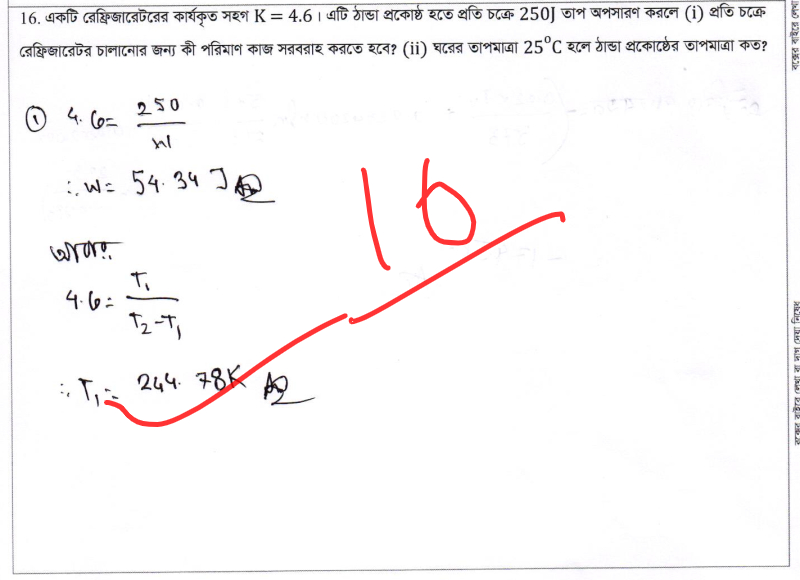 16. একটি রেফ্রিজারেটরের কার্যকৃত সহগ K = 4.6। এটি ঠান্ডা প্রকোষ্ঠ হতে প্রতি চক্রে 250J তাপ অপসারণ করলে (i) প্রতি চক্রে
রেফ্রিজারেটর চালানোর জন্য কী পরিমাণ কাজ সরবরাহ করতে হবে? (ii) ঘরের তাপমাত্রা 25°C হলে ঠান্ডা প্রকোষ্ঠের তাপমাত্রা কত?
① 4.6 = 250/W
∴ W = 54.34 J
16
আবার,
4.6 = T₁/T₂-T₁
∴ T₁ = 244.78K
বক্সের বাইরে লেখা বা দাগ দেয়া নিষেধ